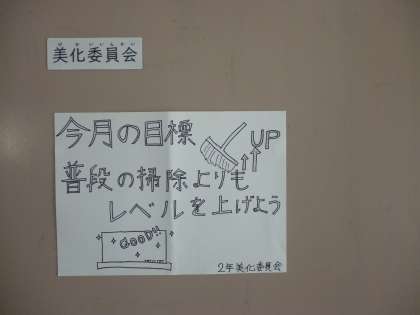 びかいいんかい
美化委員会
今月の目標
UP
普段の掃除よりも
レベルを上げよう
GOOD!!
2年美化委員会